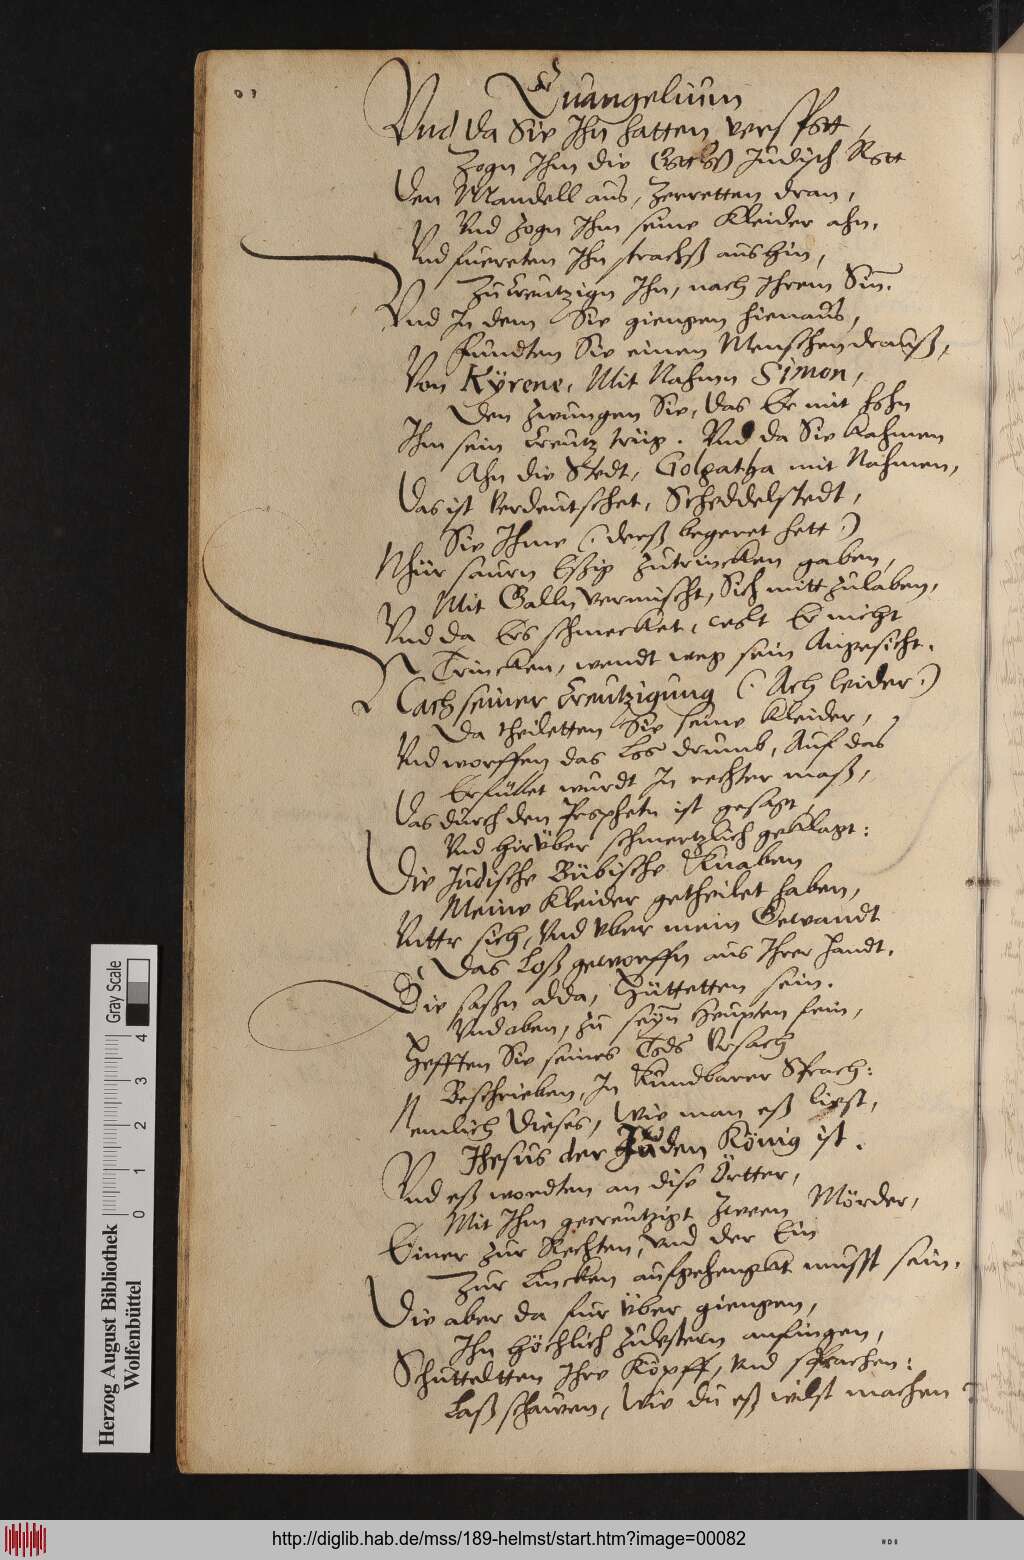 Euangelium
Vnd da Sie Ihn hatten verspott,
Zogn Ihm die Gottloß Jüdisch Rott
Den Mandell aus, zerretten dran,
Vnd zogn Ihm seine Kleider ahn.
Vnd fuereten Ihn strachß aus hin,
Zu creutzign Ihn, nach Ihrem Sin.
Vnd In dem Sie giengen hienaus,
Fundten Sie einen Menschen drauß,
Von Kÿrene, Mit Nahmn Simon,
Den zwungen Sie, das Er mit hohn
Ihm sein Creutz trüg. Vnd da Sie kahmen
Ahn die Stedt, Golgatha mit Nahmen,
Das ist verdeutschet, Scheddelstedt,
Sie Ihme (: derß begeret hett :)
Nhür saurn Eßig zutrincken gaben,
Mit Galln vermischt, Sich mitt zulaben,
Vnd da Ers schmecket, wolt Er nicht
Trincken, wendt weg sein Angesicht.
Nach seiner Creutzigung (: Ach leider :)
Da theiletten Sie seine Kleider,
Vnd worffen das Los drumb, Auf das
Erfüllet wurdt In rechter maß,
Das durch den Prophetn ist gesagt,
Vnd hirüber schmertzlich geklagt:
Die Jüdische Bübische Knaben
Meine Kleider getheilet haben,
Vnttr sich, Vnd vber mein Gewandt
Das Loß geworffn aus Ihrer Handt.
Die saßn alda, Hüttetten sein.
Vnd oben, zu seyn Heupten fein,
Hefften Sie seines Tods Vrsach
Beschrieben, In kundbarer Sprach:
Nemlich dieses, wie man eß liest,
Jhesus der Jüden König ist.
Vnd eß wordten an dise Örtter,
Mit Ihm gecreutzigt zween Mörder,
Einer zur Rechten, vnd der Ein
Zur Lincken aufgehengkt musst sein.
Die aber da fur über giengen,
Ihn höchlich zulestern anfingen,
Schütteltten Ihre Köpff, vnd sprachen:
Laß schawen, wie du eß wilst machen
Gray Scale
4 3 2 1 0
Herzog August Bibliothek
Wolfenbüttel
http://diglib.hab.de/mss/189-helmst/start.htm?image=00082